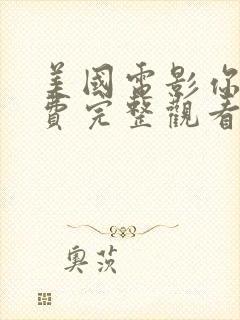 美國電影你
費完整觀看
奧茨